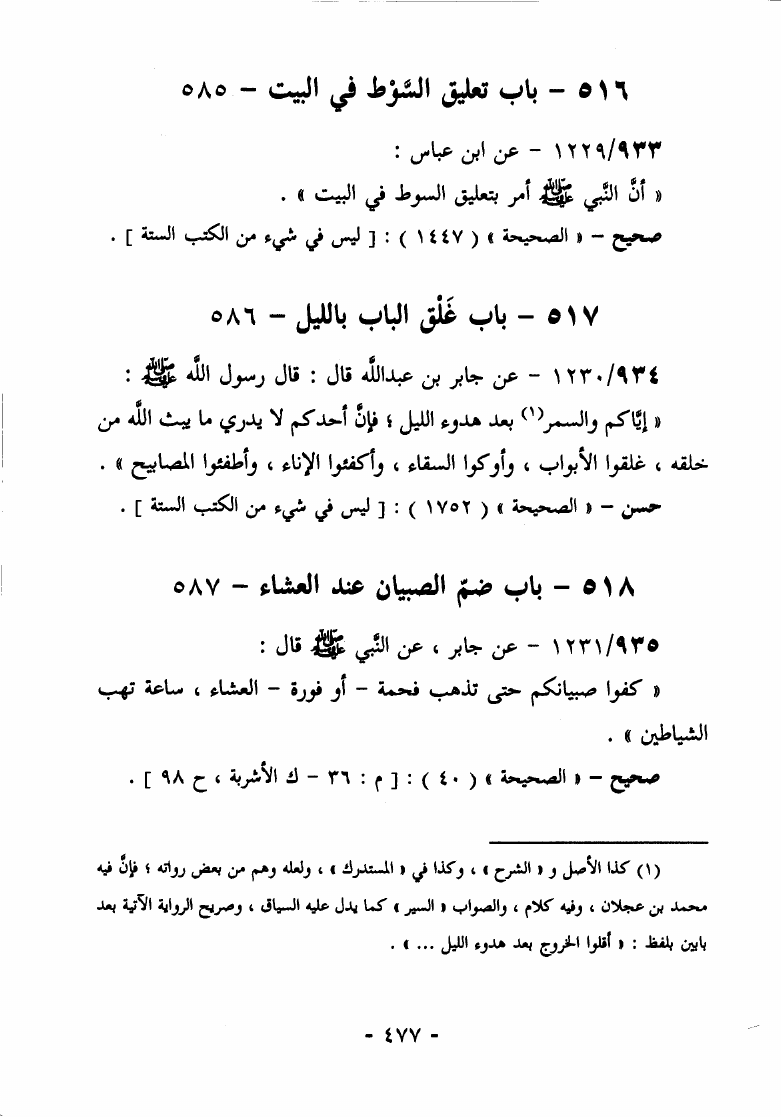 ٥١٦ - باب تعليق السَّوْط في البيت - ٥٨٥
١٢٢٩/٩٣٣ - عن ابن عباس :
« أنَّ النَّبي ﷺ أمر بتعليق السوط في البيت » .
صحيح - « الصحيحة » ( ١٤٤٧ ) : [ ليس في شيء من الكتب الستة ] .
٥١٧ - باب غَلْق الباب بالليل - ٥٨٦
١٢٣٠/٩٣٤ - عن جابر بن عبدالله قال : قال رسول الله ﷺ :
« إيَّاكم والسمر(١) بعد هدوء الليل ؛ فإنَّ أحدكم لا يدري ما يبث الله من
خلقه ، غلقوا الأبواب ، وأوكوا السقاء ، وأكفئوا الإناء ، وأطفئوا المصابيح » .
حسن - « الصحيحة » ( ١٧٥٢ ) : [ ليس في شيء من الكتب الستة ] .
٥١٨ - باب ضمّ الصبيان عند العشاء - ٥٨٧
١٢٣١/٩٣٥ - عن جابر ، عن النَّبي ﷺ قال :
« كفوا صبيانكم حتى تذهب فحمة - أو فورة - العشاء ، ساعة تهب
الشياطين » .
صحيح - « الصحيحة » ( ٤٠ ) : [ م : ٣٦ - ك الأشربة ، ح ٩٨ ] .
(١) كذا الأصل و « الشرح » ، وكذا في « المستدرك » ، ولعله وهم من بعض رواته ؛ فإنَّ فيه
محمد بن عجلان ، وفيه كلام ، والصواب « السير » كما يدل عليه السياق ، وصريح الرواية الآتية بعد
بابين بلفظ : « أقلوا الخروج بعد هدوء الليل ... » .
- ٤٧٧ -